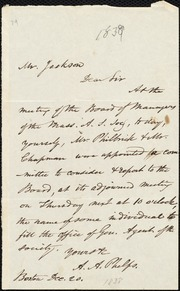 1839
Mr. Jackson
Dear Sir
At the
meeting of the Board of Managers
of the Mass. A. S. Soc., to-day,
yourself, Mr Philbrick & Mr.
Chapman were appointed a com-
mittee to consider & report to the
Board, at its adjourned meeting
on Thursday next at 10 o'clock,
the name of some individual to
fill the office of Gen. Agent of the
society. Yours &c
A. A. Phelps.
Boston Dec. 20.
1838